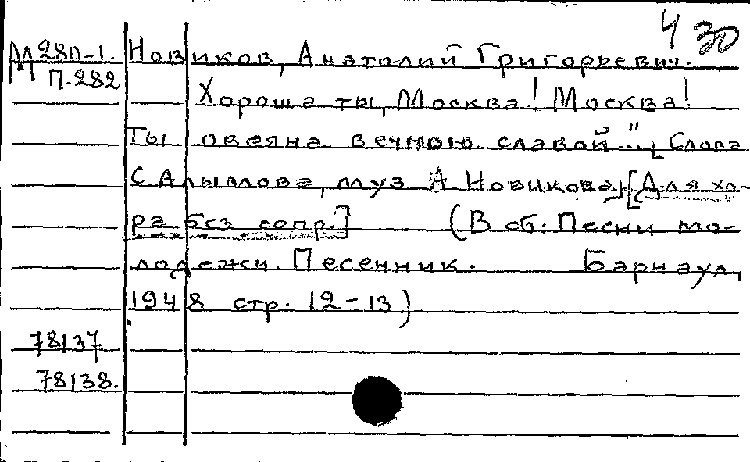 430
М 280-1. Новиков, Анатолий Григорьевич.
П-282
Хороша ты, Москва! Москва!
Ты овеяна вечною славой...", [Слова
С. Алымова, муз А Новикова] [Для хо-
ра без сопр.] (В сб: Песни мо-
лодежи. Песенник. Барнаул,
1948 стр. 12-13)
78137
78138.